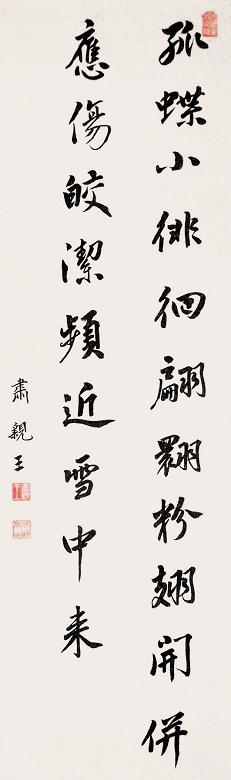 孤蝶小徘徊翩翾粉翅開併
應傷皎潔頻近雪中来
肅親王